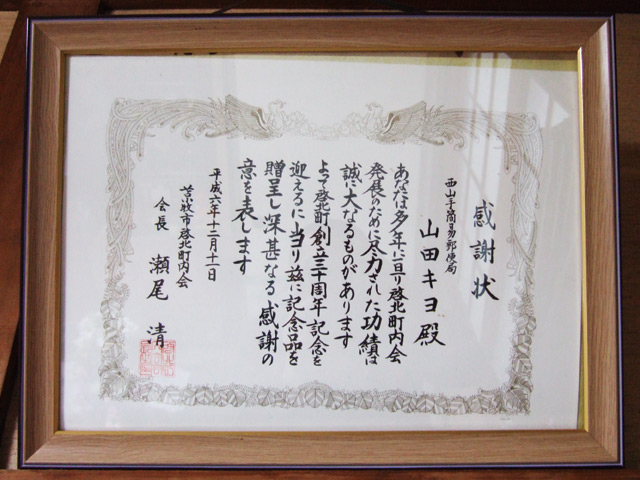 感謝状
西山手簡易郵便局
山田キヨ殿
あなたは多年に亘り啓北町内会
発展のために尽力された功績は
誠に大なるものがあります
よって啓北町創立三十周年記念を
迎えるに当り茲に記念品を
贈呈し深甚なる感謝の
意を表します
平成六年十二月十一日
苫小牧市啓北町内会
会長 瀬尾 清